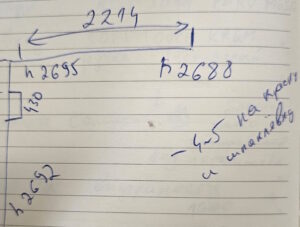 2214
h 2695
h 2688
430
h 2692
-4-5 на краску
и шпаклёвку